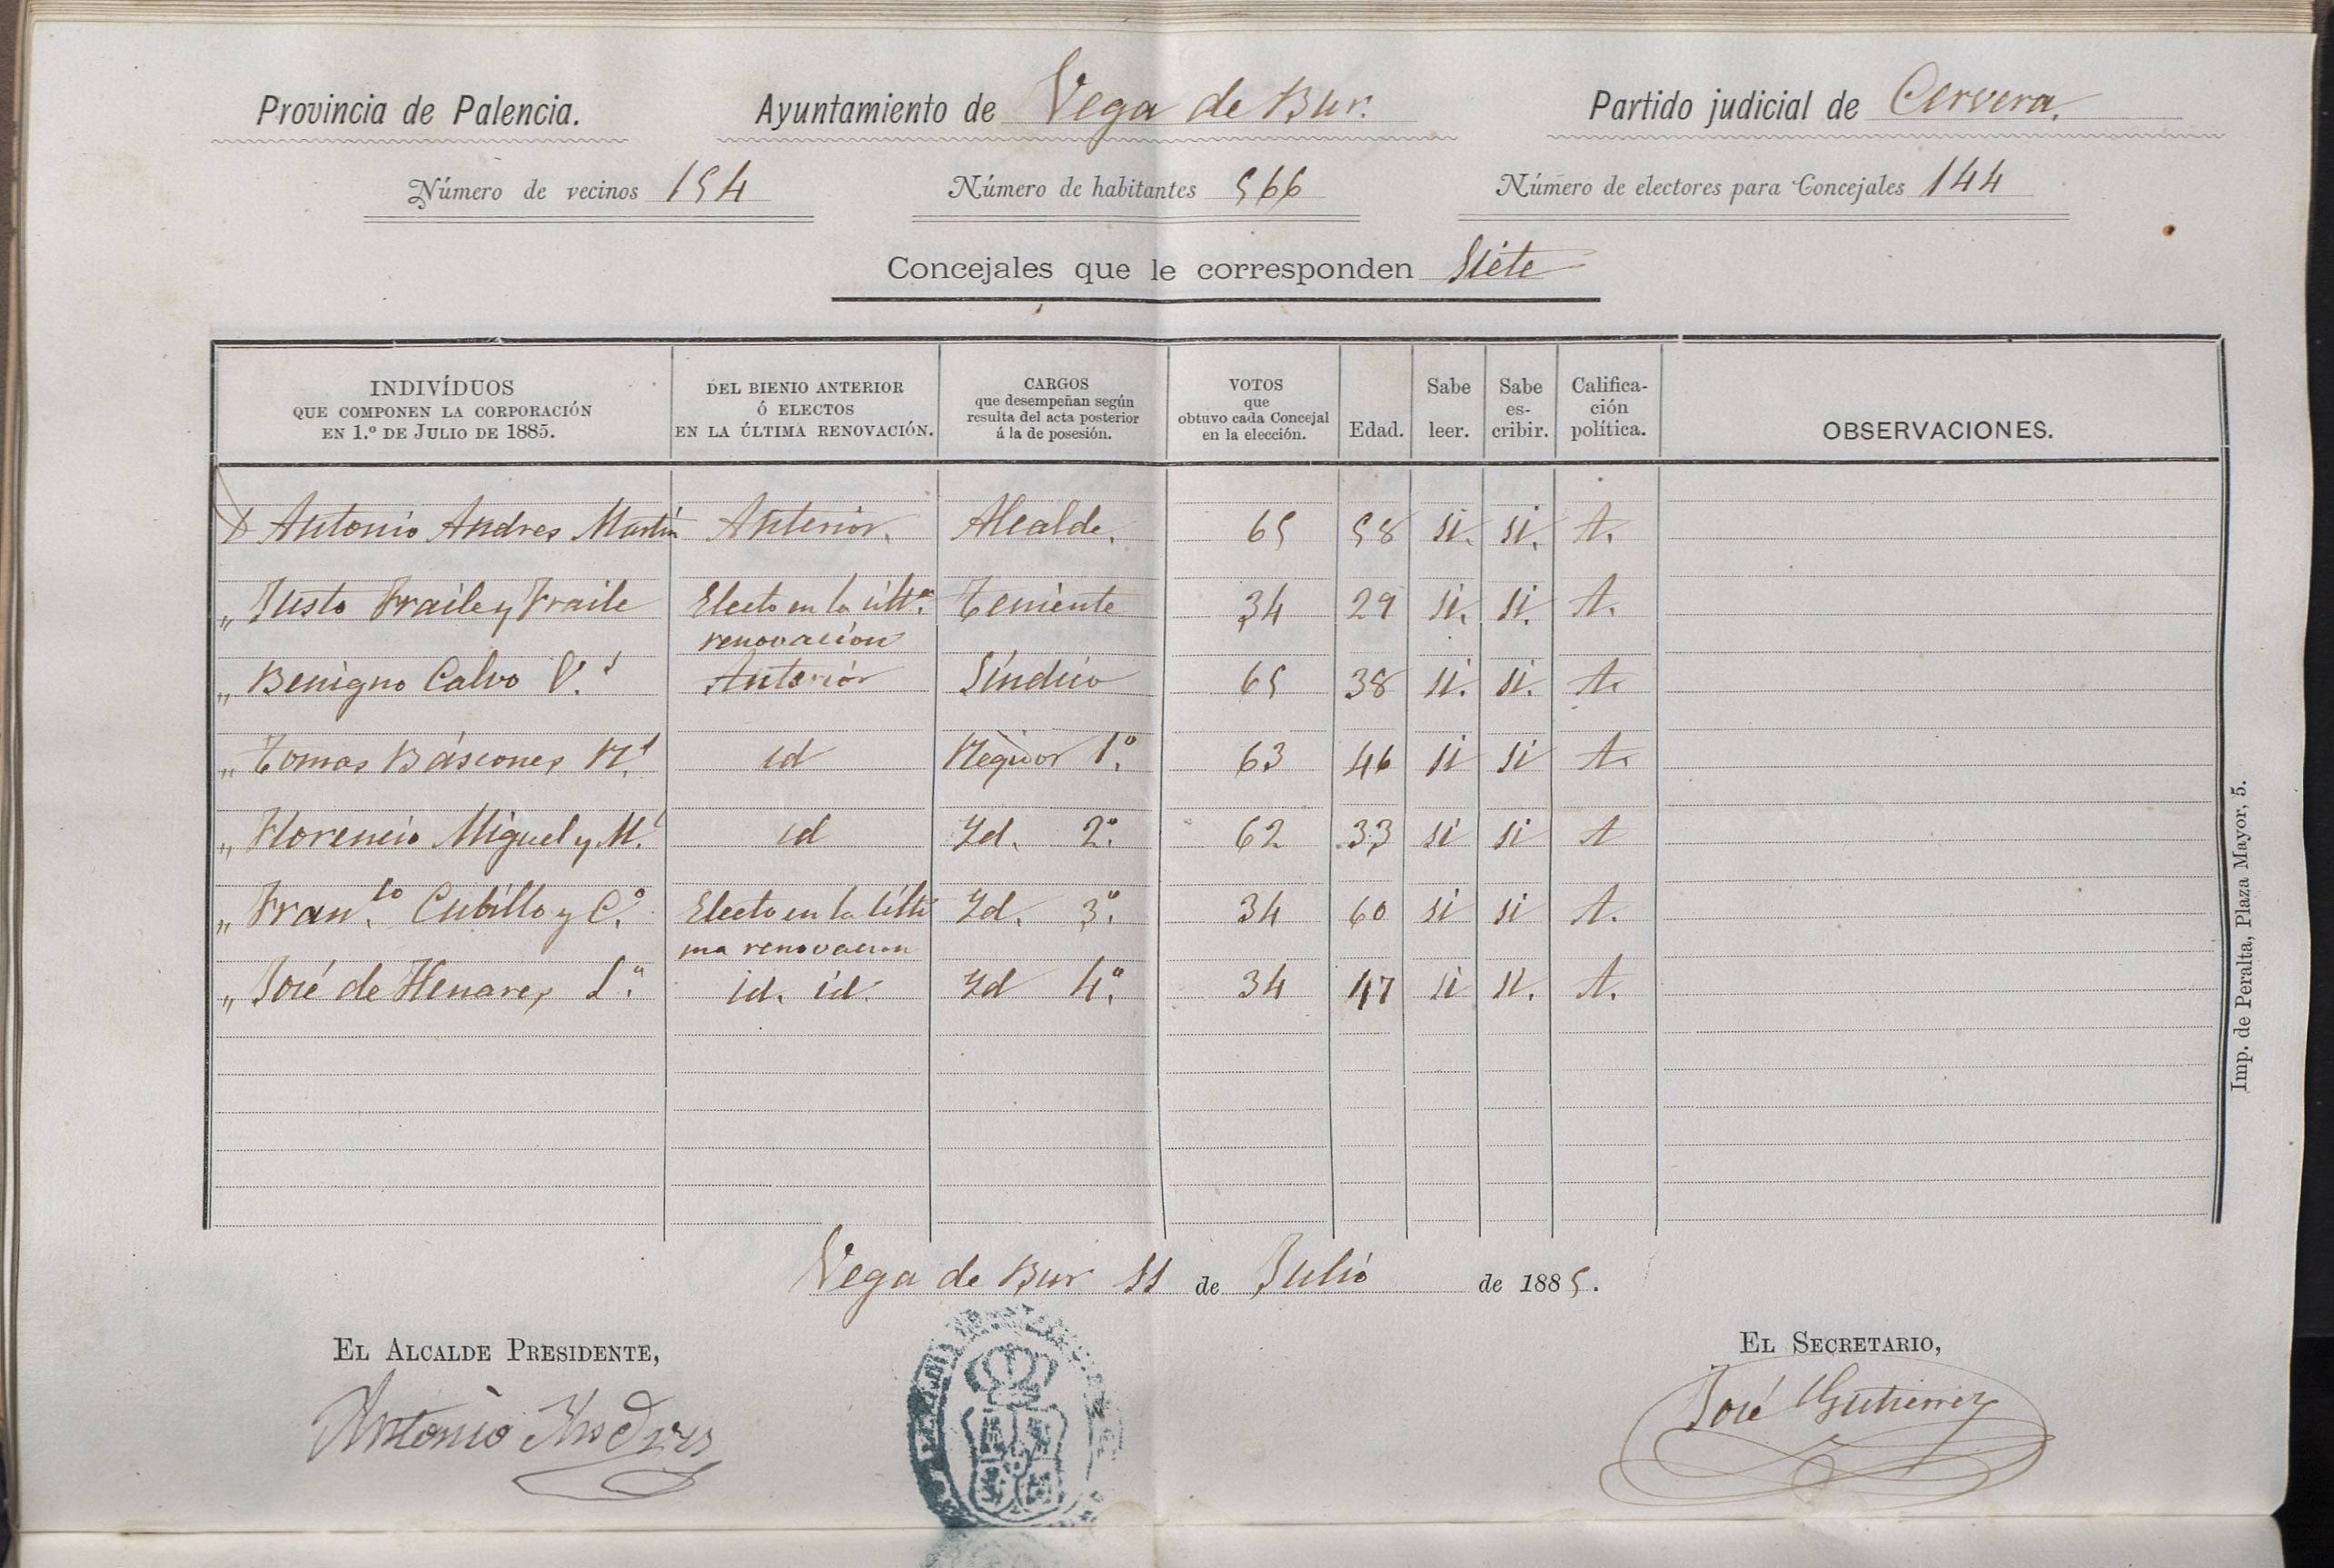 Provincia de Palencia. Ayuntamiento de Vega de Bur. Partido judicial de Cervera.
Número de vecinos 154 Número de habitantes 566 Número de electores para Concejales 144
Concejales que le corresponden Siete
INDIVÍDUOS
QUE COMPONEN LA CORPORACIÓN
EN 1.º DE JULIO DE 1885.
DEL BIENIO ANTERIOR
Ó ELECTOS
EN LA ÚLTIMA RENOVACIÓN.
CARGOS
que desempeñan según
resulta del acta posterior
á la de posesión.
VOTOS
que
obtuvo cada Concejal
en la elección.
Edad.
Sabe
leer.
Sabe
es-
cribir.
Califica-
ción
política.
OBSERVACIONES.
D Antonio Andres Martin Anterior. Alcalde. 65 58 si. si. A.
" Justo Fraile y Fraile Electo en la últª. Teniente 34 29 si. si. A.
renovacion
" Benigno Calvo Anterior Síndico 65 38 si. si. A.
" Tomas Báscones id Regidor 1º. 63 46 si si A.
" Florencio Miguel y M. id Yd. 2º. 62 33 si si A
" Fran.co Cubillo y C.º Electo en la últi Yd. 3º. 34 60 si si A.
ma renovacion
" José de Henares id. id. Yd 4º. 34 47 si si. A.
Vega de Bur 11 de Julio de 1885.
EL ALCALDE PRESIDENTE,
Antonio Andres
EL SECRETARIO,
José Gutierrez
Imp. de Peralta, Plaza Mayor, 5.